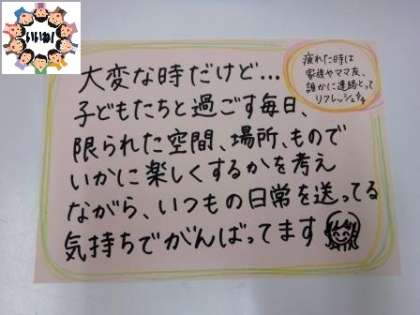 いいね!
疲れた時は
家族やママ友、
誰かに連絡とって
リフレッシュ
大変な時だけど…
子どもたちと過ごす毎日、
限られた空間、場所、もので
いかに楽しくするかを考え
ながら、いつもの日常を送ってる
気持ちでがんばってます